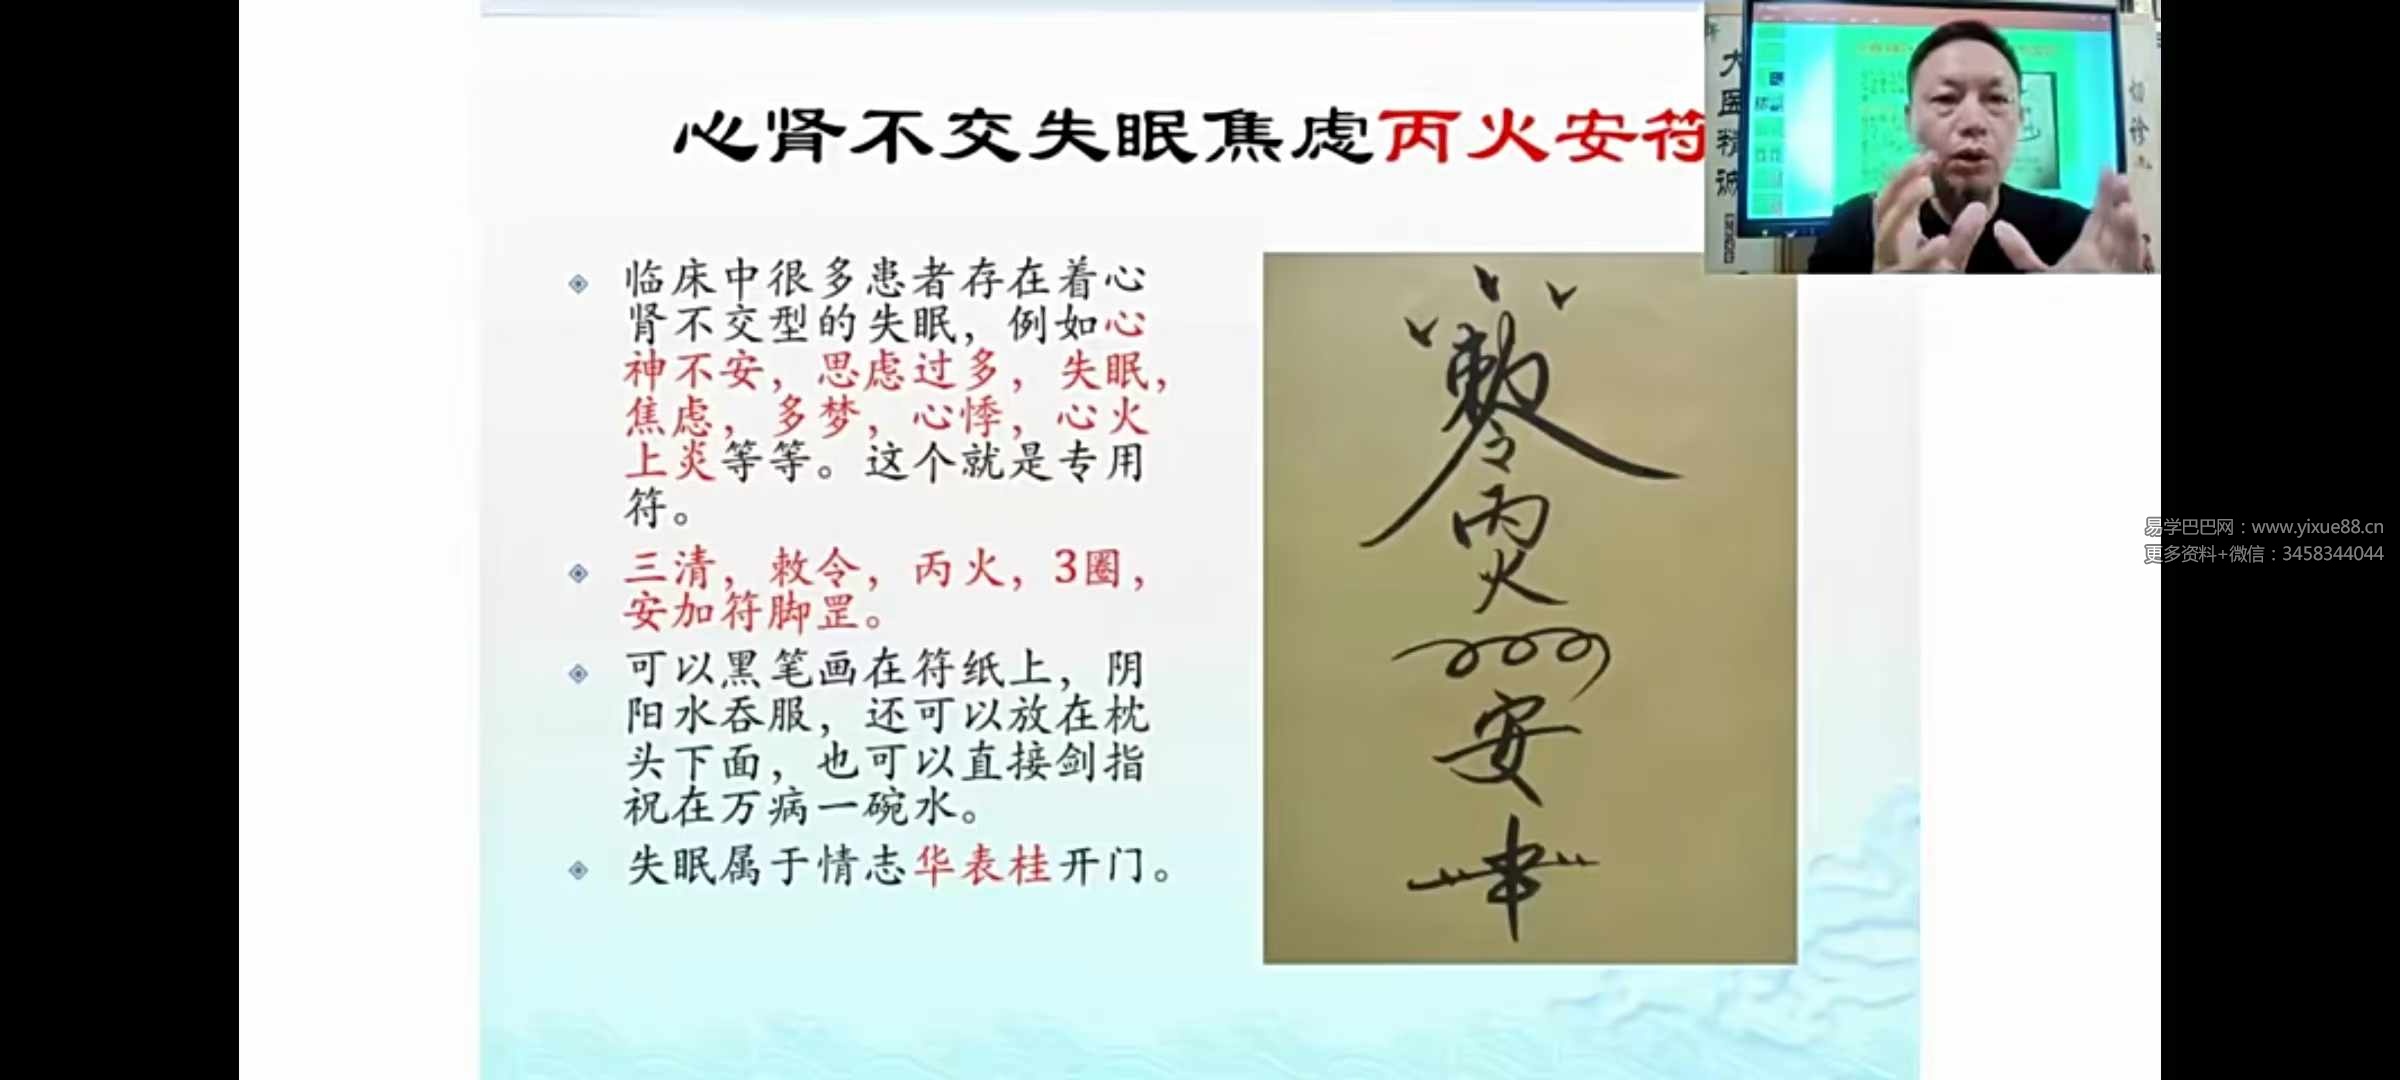 心肾不交失眠焦虑丙火安符
临床中很多患者存在着心
肾不交型的失眠，例如心
神不安，思虑过多，失眠，
焦虑，多梦，心悸，心火
上炎等等。这个就是专用
符。
三清，敕令，丙火，3圈，
安加符脚罡。
可以黑笔画在符纸上，阴
阳水吞服，还可以放在枕
头下面，也可以直接剑指
祝在万病一碗水。
失眠属于情志华表桂开门。
敕
令
丙
火
安
大医精诚
易学巴巴网：www.yixue88.cn
更多资料+微信：3458344044